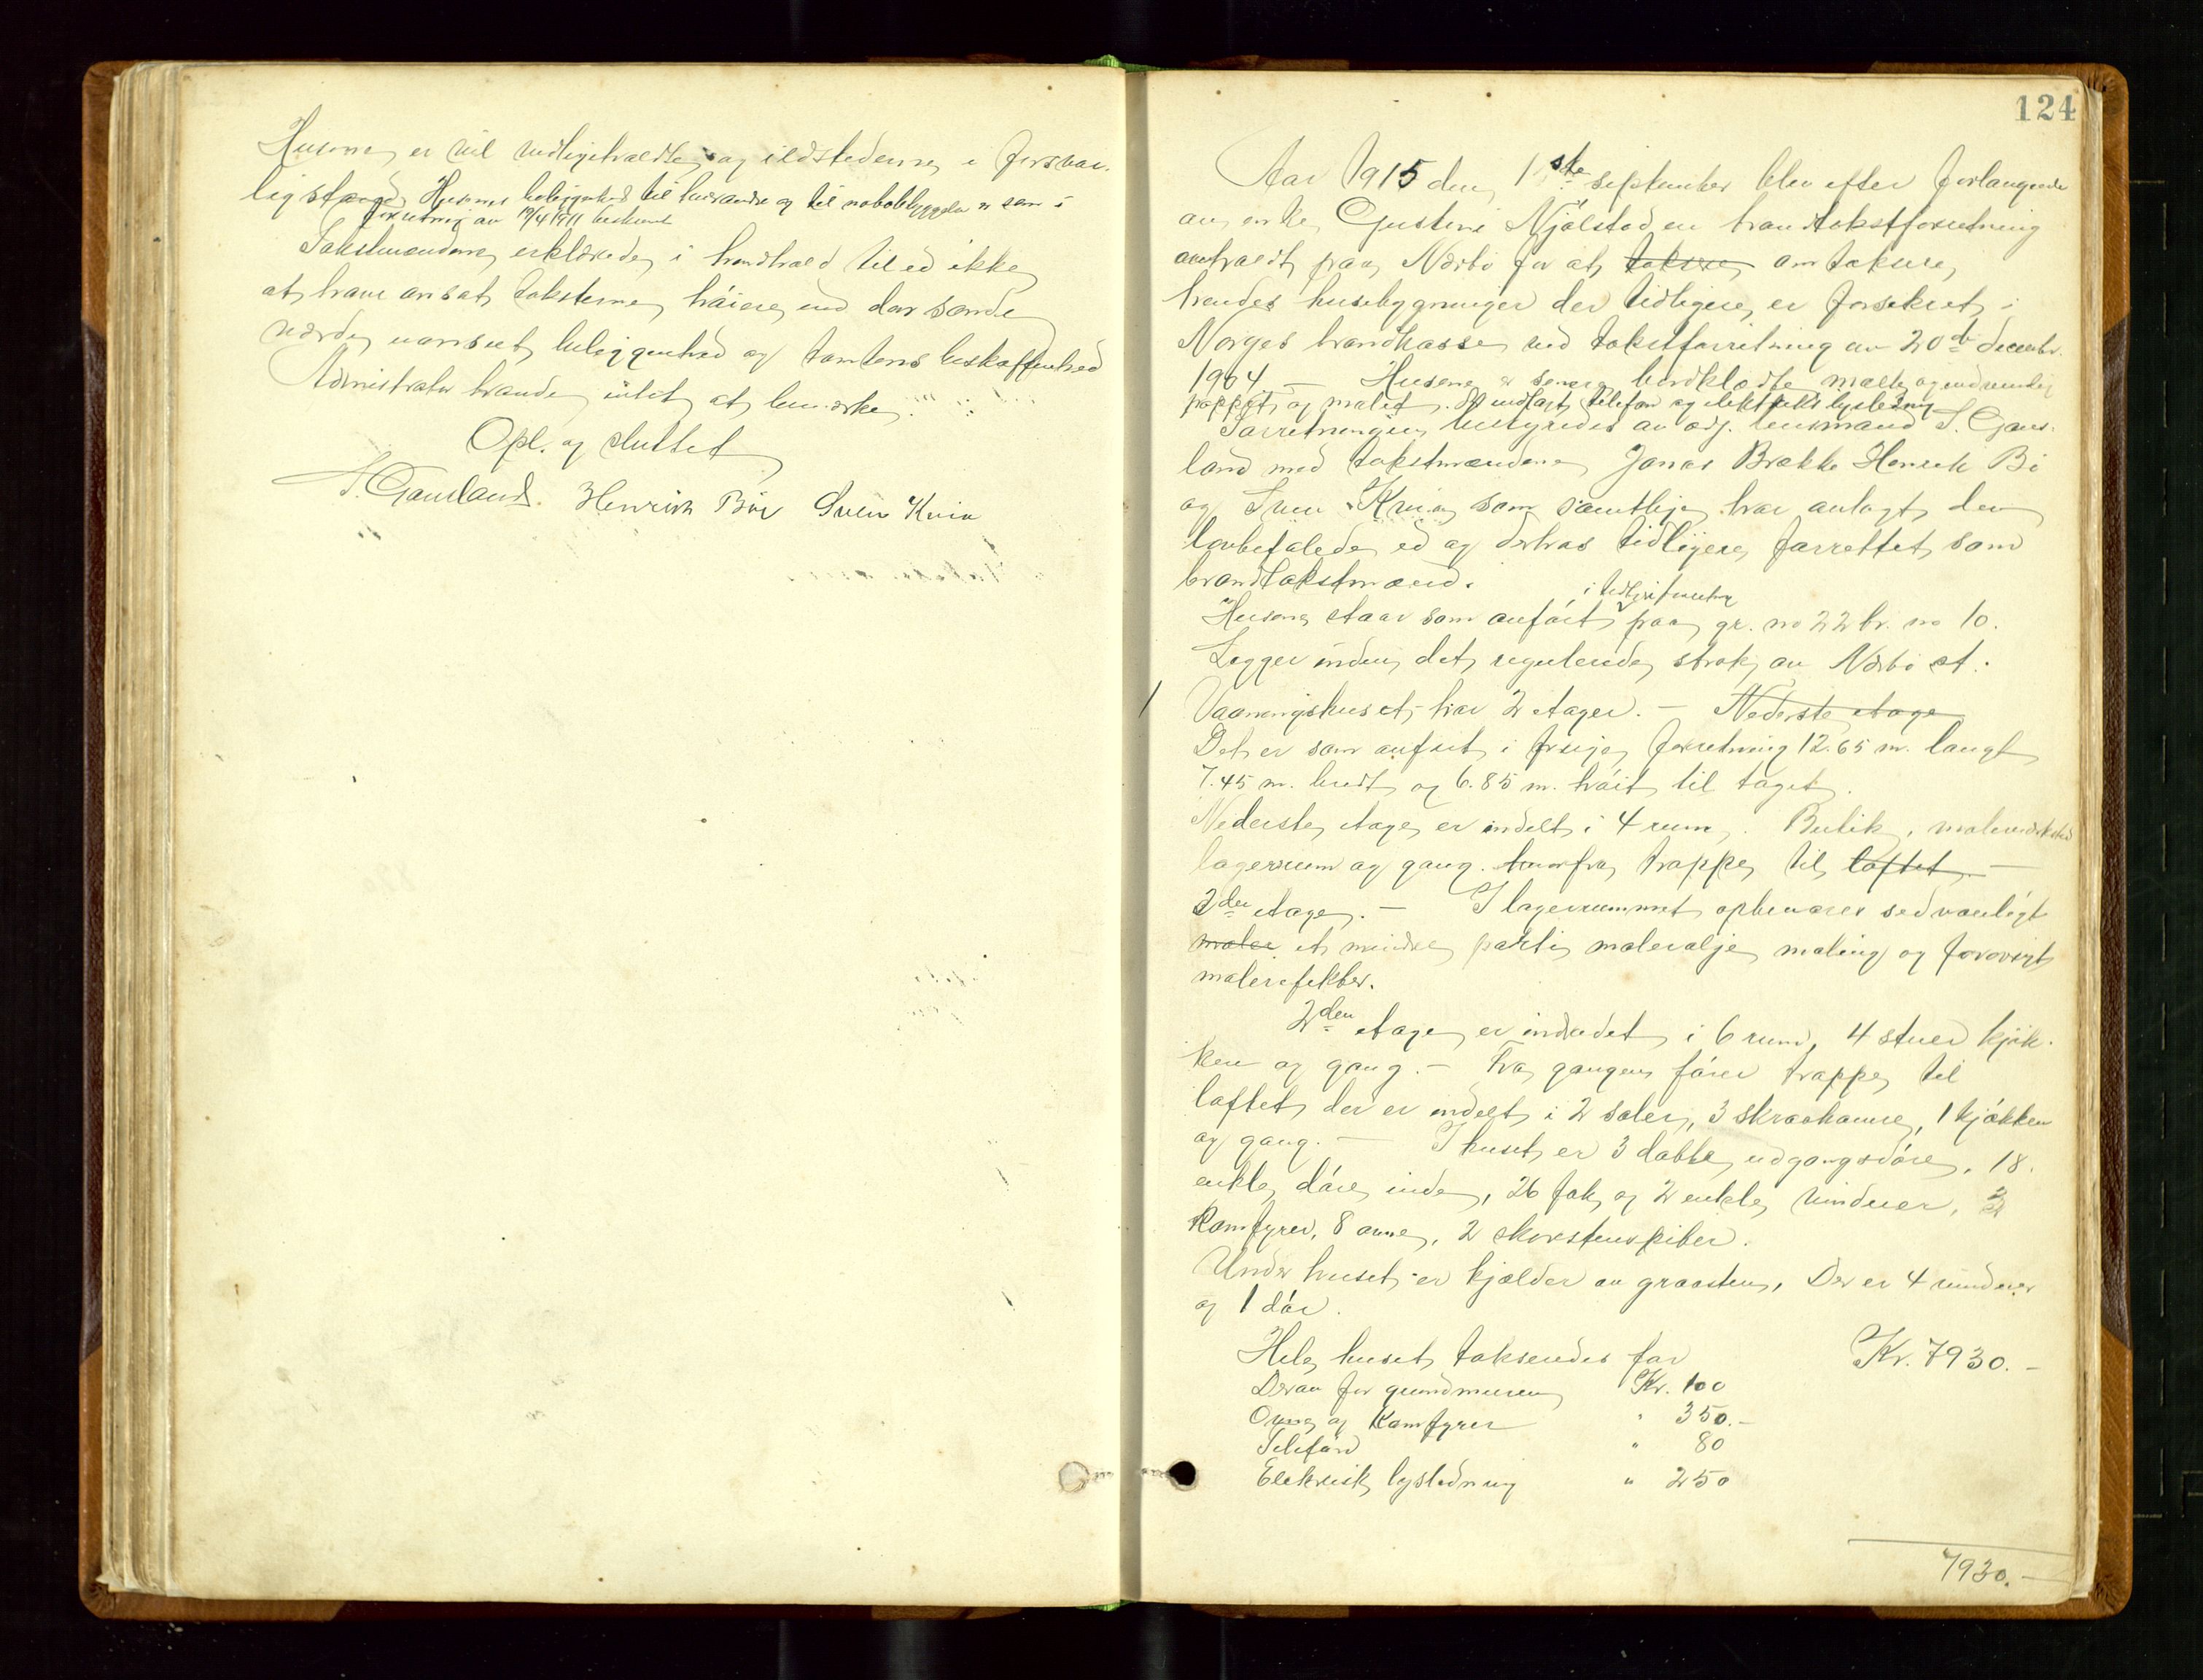 Husene er vel vedligeholdte og ildstederne i forsvar-
lig stand. Husenes beliggenhed til hverandre og til nabobebyggelse er som i
forretning av 19/4 1911 beskrevet
Takstmændene erklærede i henhold til ed ikke
at have ansat taksterne høiere end den sande
værdi uanseet beliggenhed og tomtens beskaffenhed
Administrator havde intet at bemærke.
Opl. og sluttet
S. Gausland. Henrik Bøe Sven Kvia
124
Aar 1915 den 1ste september blev efter forlangende
av enke Gustine Njølstad en brandtakstforretning
avholdt paa Nærbø for at taksere omtaksere
hendes husebygninger der tidligere er forsikret i
Norges brandkasse ved takstforretning av 20de decembr.
1904. — Husene er senere bordklædte malte og indvendig
pappet og malet. Og indlagt telefon og elektrisk lysledning
Forretningen bestyredes av adj. lensmand S. Gaus-
land med takstmændene Jonas Brække Henrik Bø
og Sven Kvia som samtlige har avlagt den
lovbefalede ed og derhos tidligere forrettet som
brandtakstmænd.
i tidligere forretning
Husene staar som anført paa gr. no 22 br. no 10.
Ligger inden det regulerede strøk av Nærbø st.
1 Vaaningshuset har 2 etager. — Nederste etage
Det er som anført i forrige forretning 12.65 m. langt
7.45 m. bredt og 6.85 m. høit til taget.
Nederste etage er indelt i 4 rum. Butik, malerverksted
lagerrum og gang. hvorfra trappe til loftet. —
2den etage. — I lagerrummet opbevares sedvanligt
maler et mindre parti malerolje maling og forøvrigt
malereffekter.
2den etage er indredet i 6 rum, 4 stuer kjøk-
ken og gang. — Fra gangen fører trappe til
loftet der er indelt i 2 saler, 3 skraakamre, 1 kjøkken
og gang. — I huset er 3 doble udgangsdøre, 18.
enkle døre inde, 26 fak og 2 enkle vinduer, 2
komfyrer, 8 ovne, 2 skorstenspiber.
Under huset er kjælder av graasten, Der er 4 vinduer
og 1 dør.
Hele huset takseredes for Kr. 7930. —
Derav for grundmuren Kr. 100
Ovne og Komfyrer " 350. —
Telefon " 80
Elektrisk lysledning " 250
7930. —